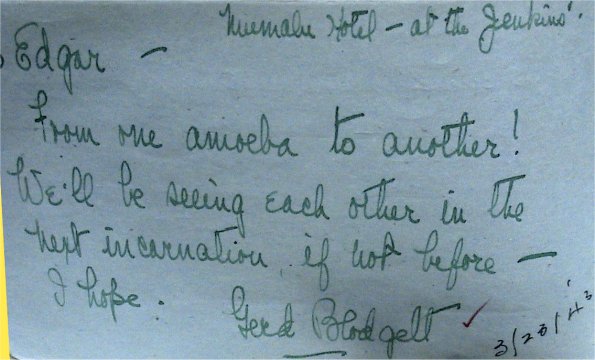 Hotel – at the Jenkins'.
Edgar –
From one amoeba to another!
We'll be seeing each other in the
next incarnation, if not before –
I hope.
Gerd Blodgett ✓
3/23/43